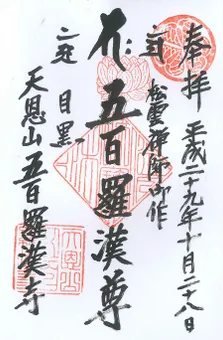 奉拝
平成二十九年十月二十八日
松雲禅師御作
五百羅漢尊
目黒
天恩山五百羅漢寺